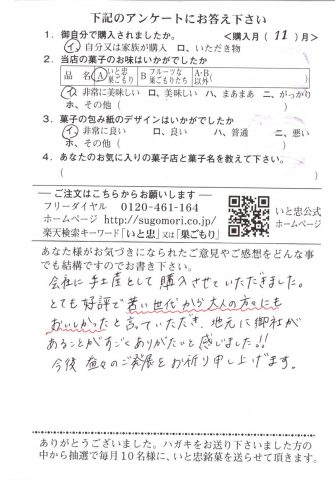 下記のアンケートにお答え下さい
1. 御自分で購入されましたか。 <購入月( 11 )月>
イ、自分又は家族が購入 ロ、いただき物
2. 当店の菓子のお味はいかがでしたか
品 名 A いと忠巣ごもり B フルーツな巣ごもりたち A・B以外( )
イ、非常に美味しい ロ、美味しい ハ、まあまあ ニ、がっかり
ホ、その他 ( )
3. 菓子の包み紙のデザインはいかがでしたか
イ、非常に良い ロ、良い ハ、普通 ニ、悪い
ホ、その他 ( )
4. あなたのお気に入りの菓子店と菓子名を教えて下さい。
( )
ご注文はこちらからお願いします
フリーダイヤル 0120-461-164
ホームページ http://sugomori.co.jp/
楽天検索キーワード「いと忠」又は「巣ごもり」
いと忠公式
ホームページ
あなた様がお気づきになられたご意見やご感想をどんな事
でも結構ですのでお書き下さい。
会社に手土産として購入させていただきました。
とても好評で若い世代から大人の方々にも
おいしかったと言っていただき、地元に御社が
あることがすごくありがたいと感じました!!
今後益々のご発展をお祈り申し上げます。
ありがとうございました。ハガキをお送り下さいました方の
中から抽選で毎月10名様に、いと忠銘菓を送らせて頂きます。